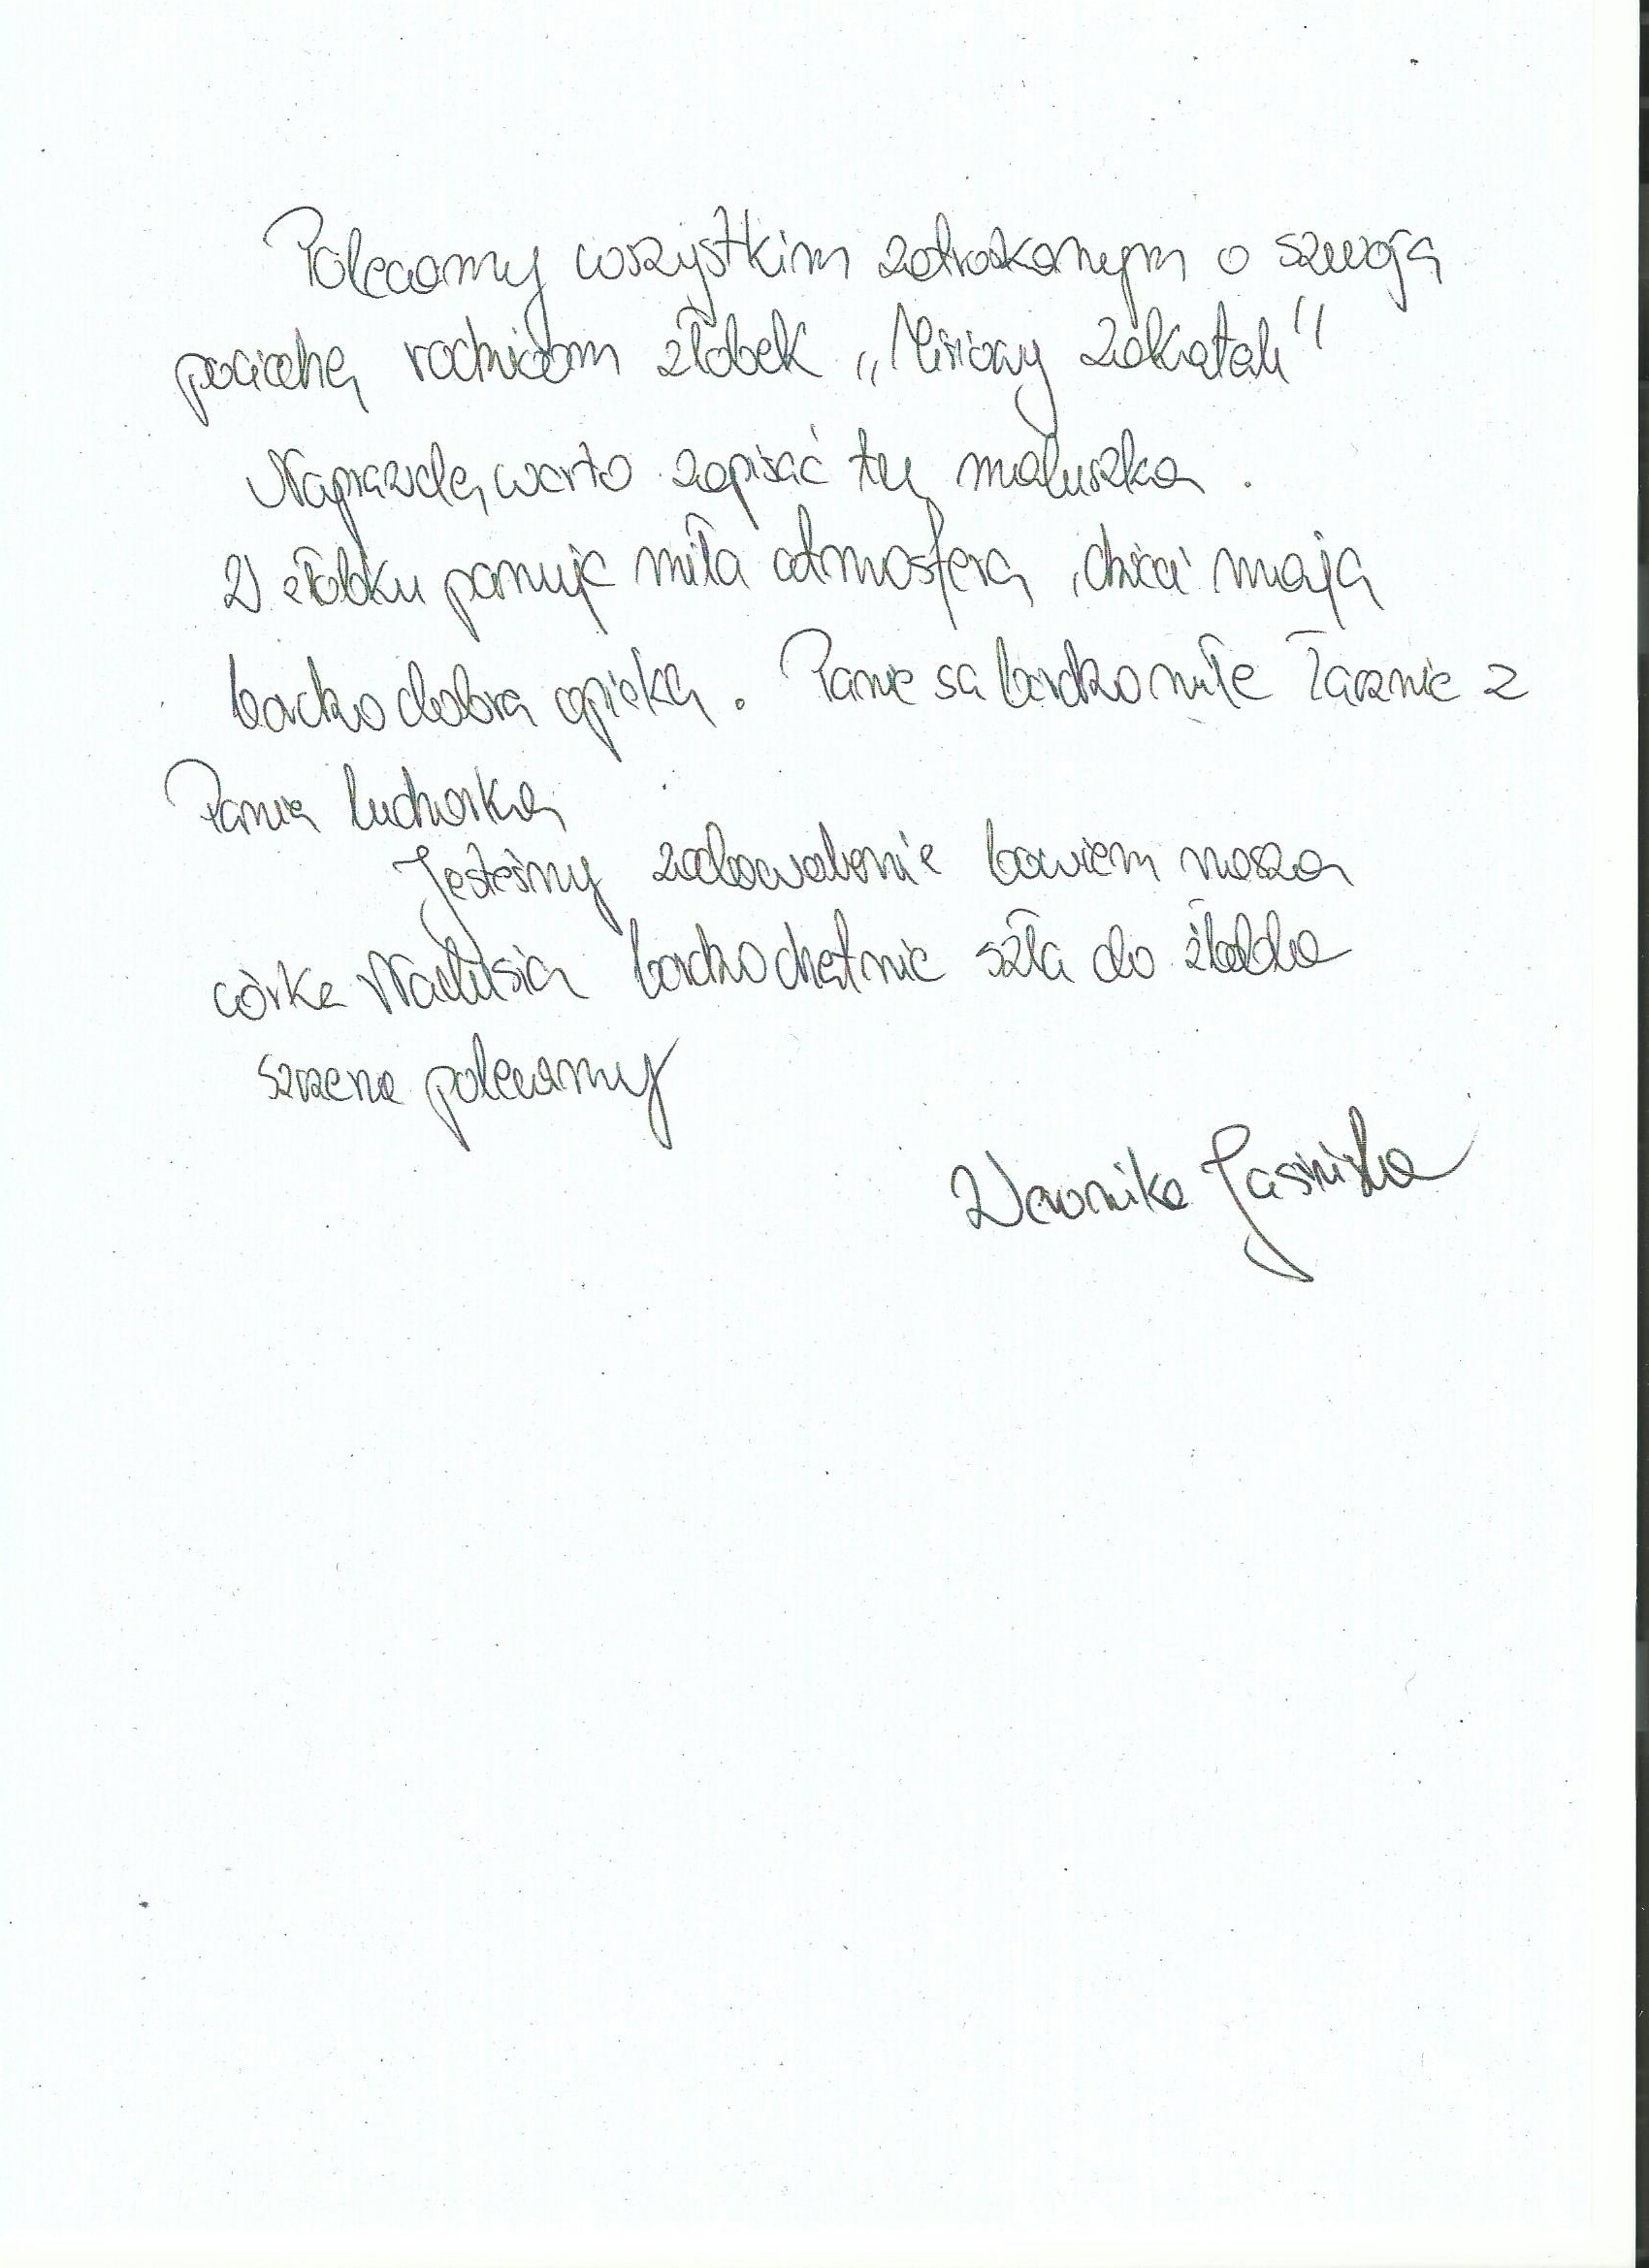 Polecamy wszystkim zatroskanym o szwoją
pociechę rodzicom złobek „Misiowy Zakątek"
Naprawdę warto zapisać tu maluszka .
W złobku panuje miła atmosfera, dzieci mają
bardzo dobrą opiekę. Panie są bardzo miłe łącznie z
Panią kucharką
Jesteśmy zadowoleni bowiem nasza
córka Nadusia bardzo chętnie szła do złobka
szczerze polecamy
Weronika Jasińska